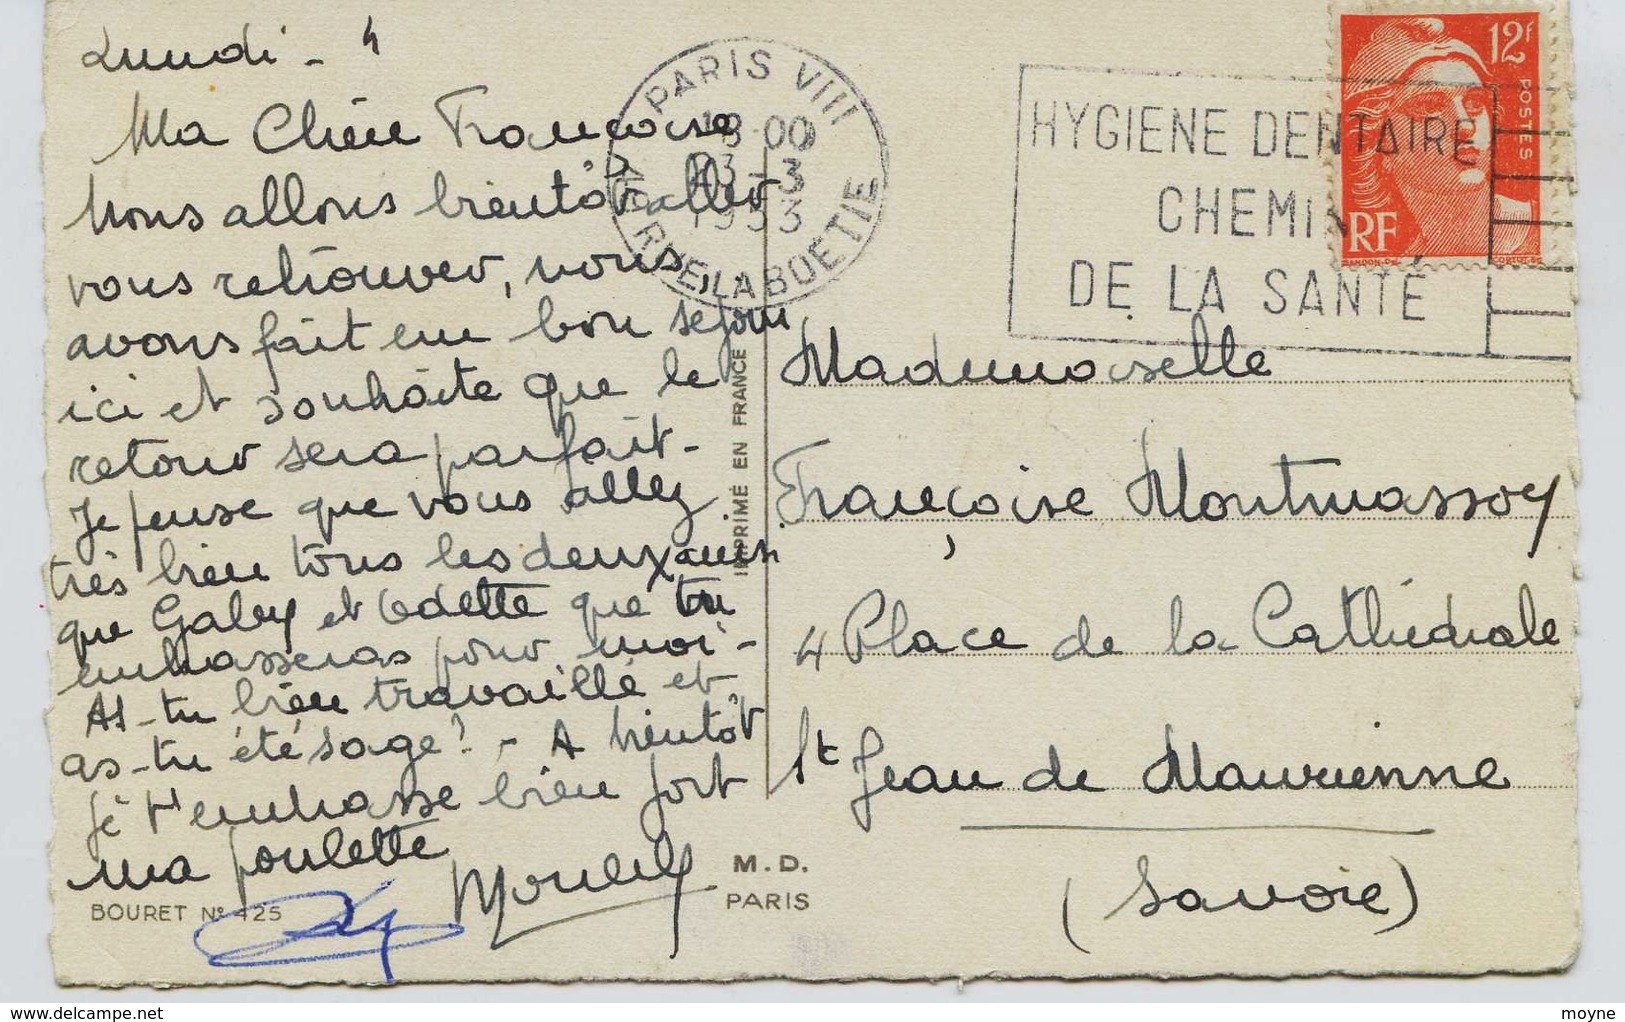 Lundi - 4
Ma Chère Françoise
Nous allons bientôt aller
vous retrouver, nous
avons fait un bon séjour
ici et souhaite que le
retour sera parfait -
Je pense que vous allez
très bien tous les deux ainsi
que Gaby et Odette que tu
embrasseras pour moi -
As-tu bien travaillé et
as-tu été sage? - A bientôt
je t'embrasse bien fort
ma poulette
BOURET N° 125
M. D.
PARIS
IMPRIMÉ EN FRANCE
PARIS VIII
00
3-3
1953
LA BOETIE
HYGIENE DENTAIRE
CHEMIN
DE LA SANTÉ
12f
POSTES
RF
Mademoiselle
Françoise Montmassoy
4 Place de la Cathédrale
St Jean de Maurienne
(Savoie)
delcampe.net
moyne